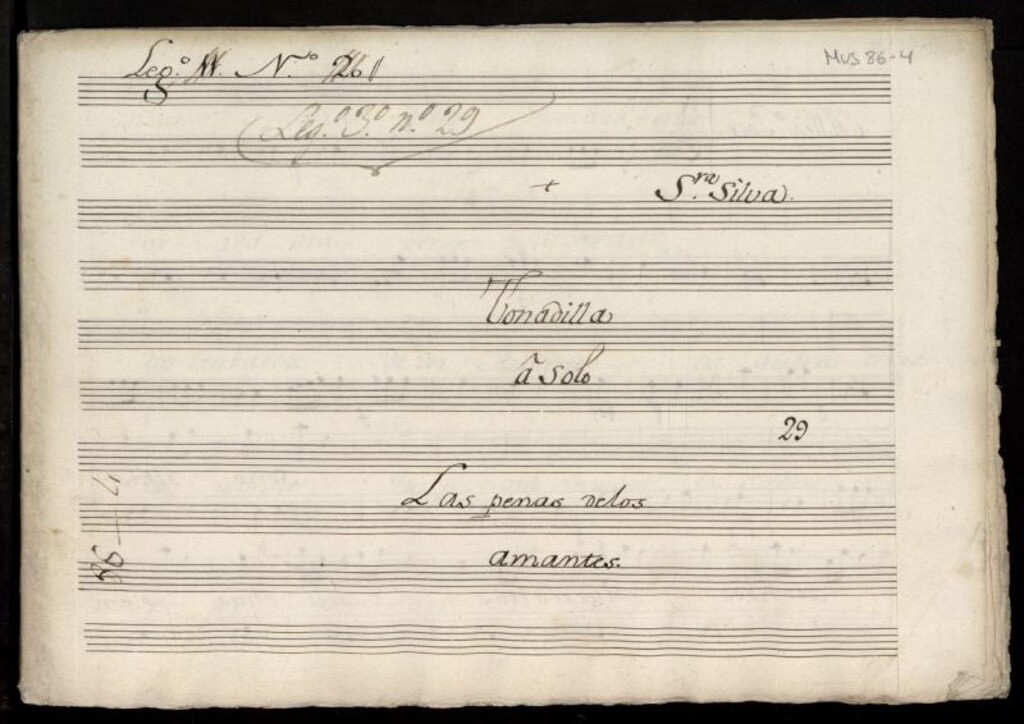 Leg.º N.º 261
MUS 86-4
Leg.º 3.º n.º 29
+ S.ra Silva.
Tonadilla
â solo
29
Las penas delos
amantes.
86-4